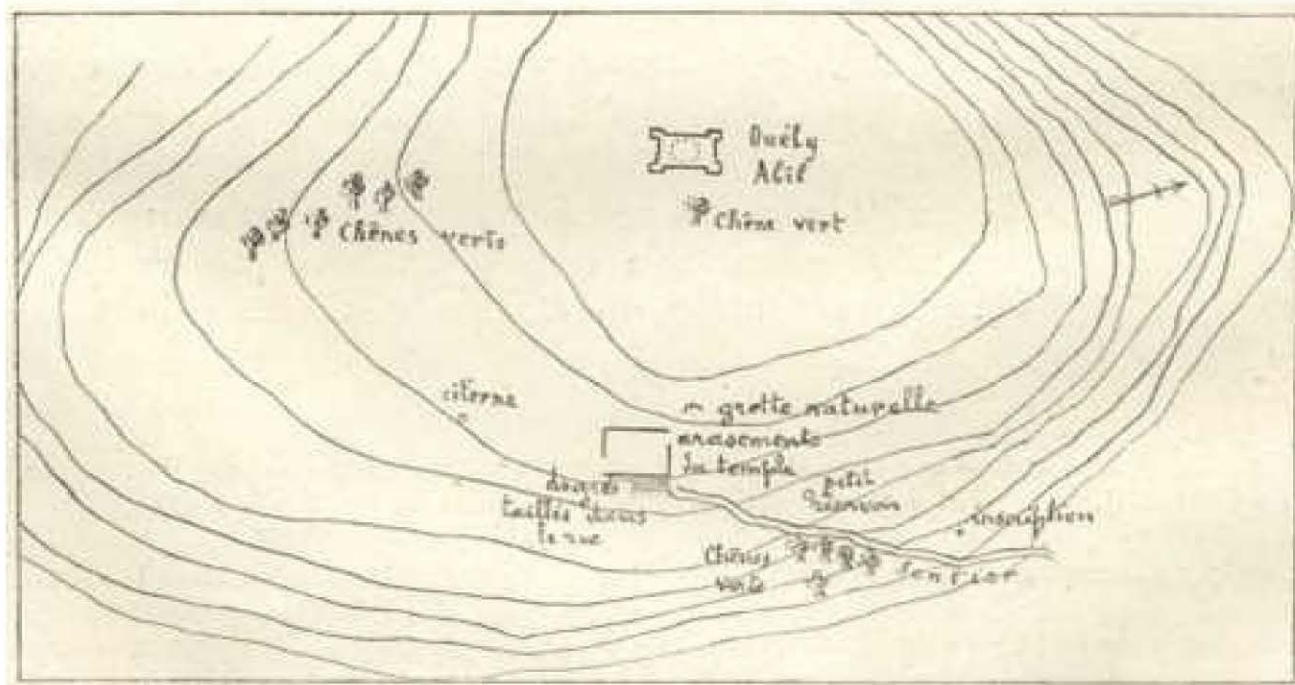 Ouély
Alil
Chêne vert
Chênes verts
citerne
grotte naturelle
arasements
du temple
degrés
taillés dans
le roc
petit
inscription
Chênes
verts
sentier